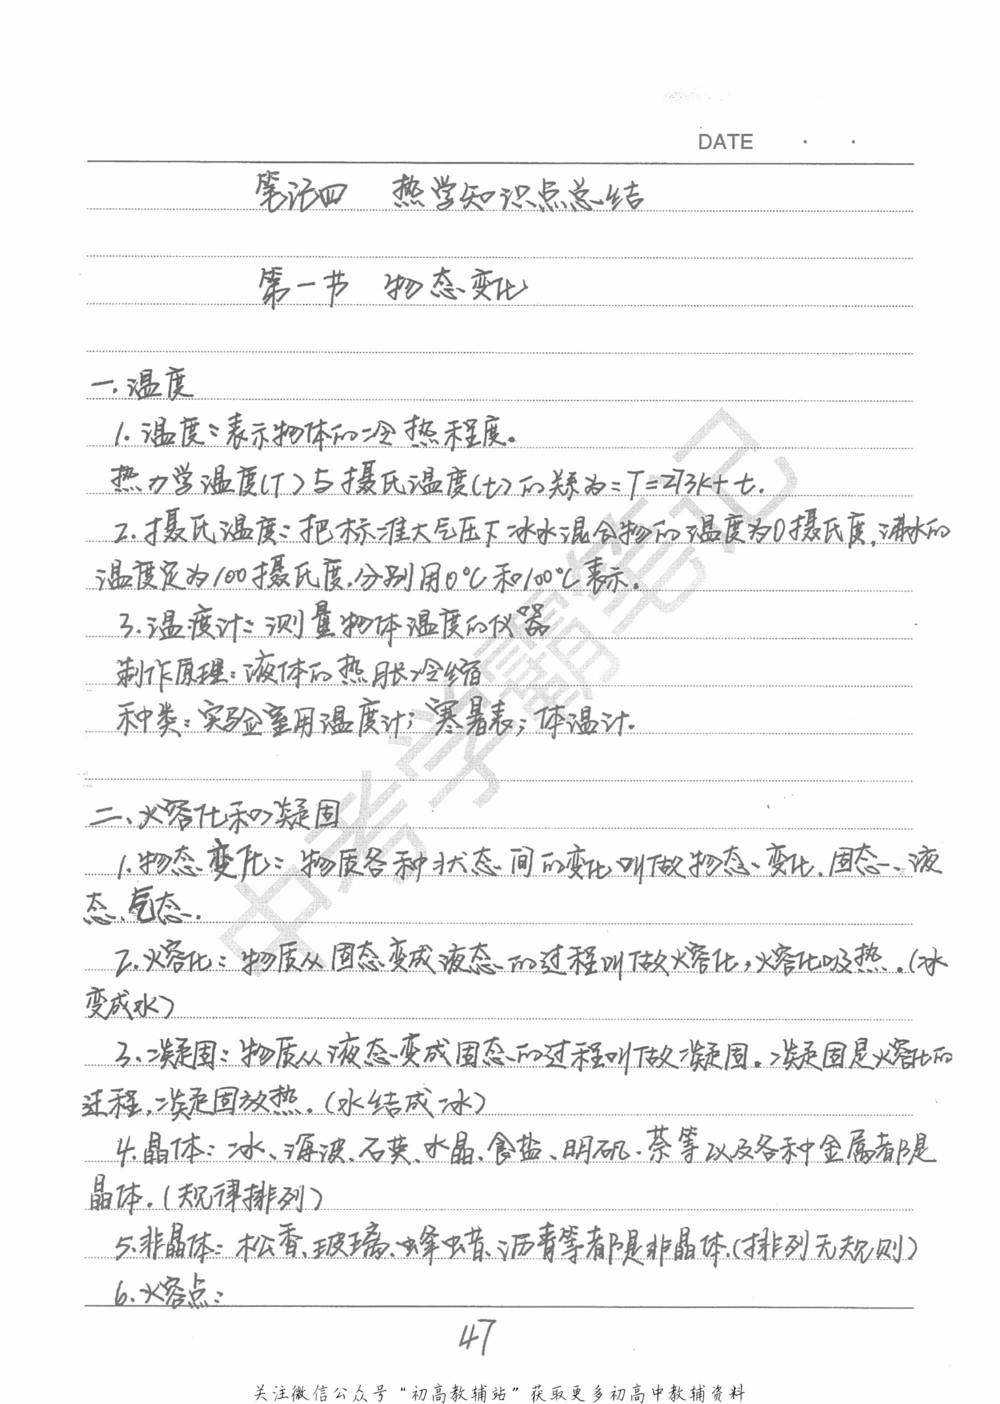 DATE · ·
笔记四 热学知识点总结
第一节 物态变化
一.温度
1.温度:表示物体的冷热程度。
热力学温度(T)与摄氏温度(t)的关系为:T=273K+t.
2.摄氏温度:把标准大气压下冰水混合物的温度为0摄氏度,沸水的
温度定为100摄氏度.分别用0℃和100℃表示.
3.温度计:测量物体温度的仪器
制作原理:液体的热胀冷缩
种类:实验室用温度计;寒暑表;体温计.
二、熔化和凝固
1.物态变化:物质各种状态间的变化叫做物态变化.固态、液
态、气态.
2.熔化:物质从固态变成液态的过程叫做熔化,熔化吸热.(冰
变成水)
3.凝固:物质从液态变成固态的过程叫做凝固。凝固是熔化的
过程,凝固放热.(水结成冰)
4.晶体:冰、海波、石英、水晶、食盐、明矾、萘等以及各种金属都是
晶体.(规律排列)
5.非晶体:松香、玻璃、蜂蜡、沥青等都是非晶体.(排列无规则)
6.熔点:
47
关注微信公众号“初高教辅站”获取更多初高中教辅资料
中考学霸笔记